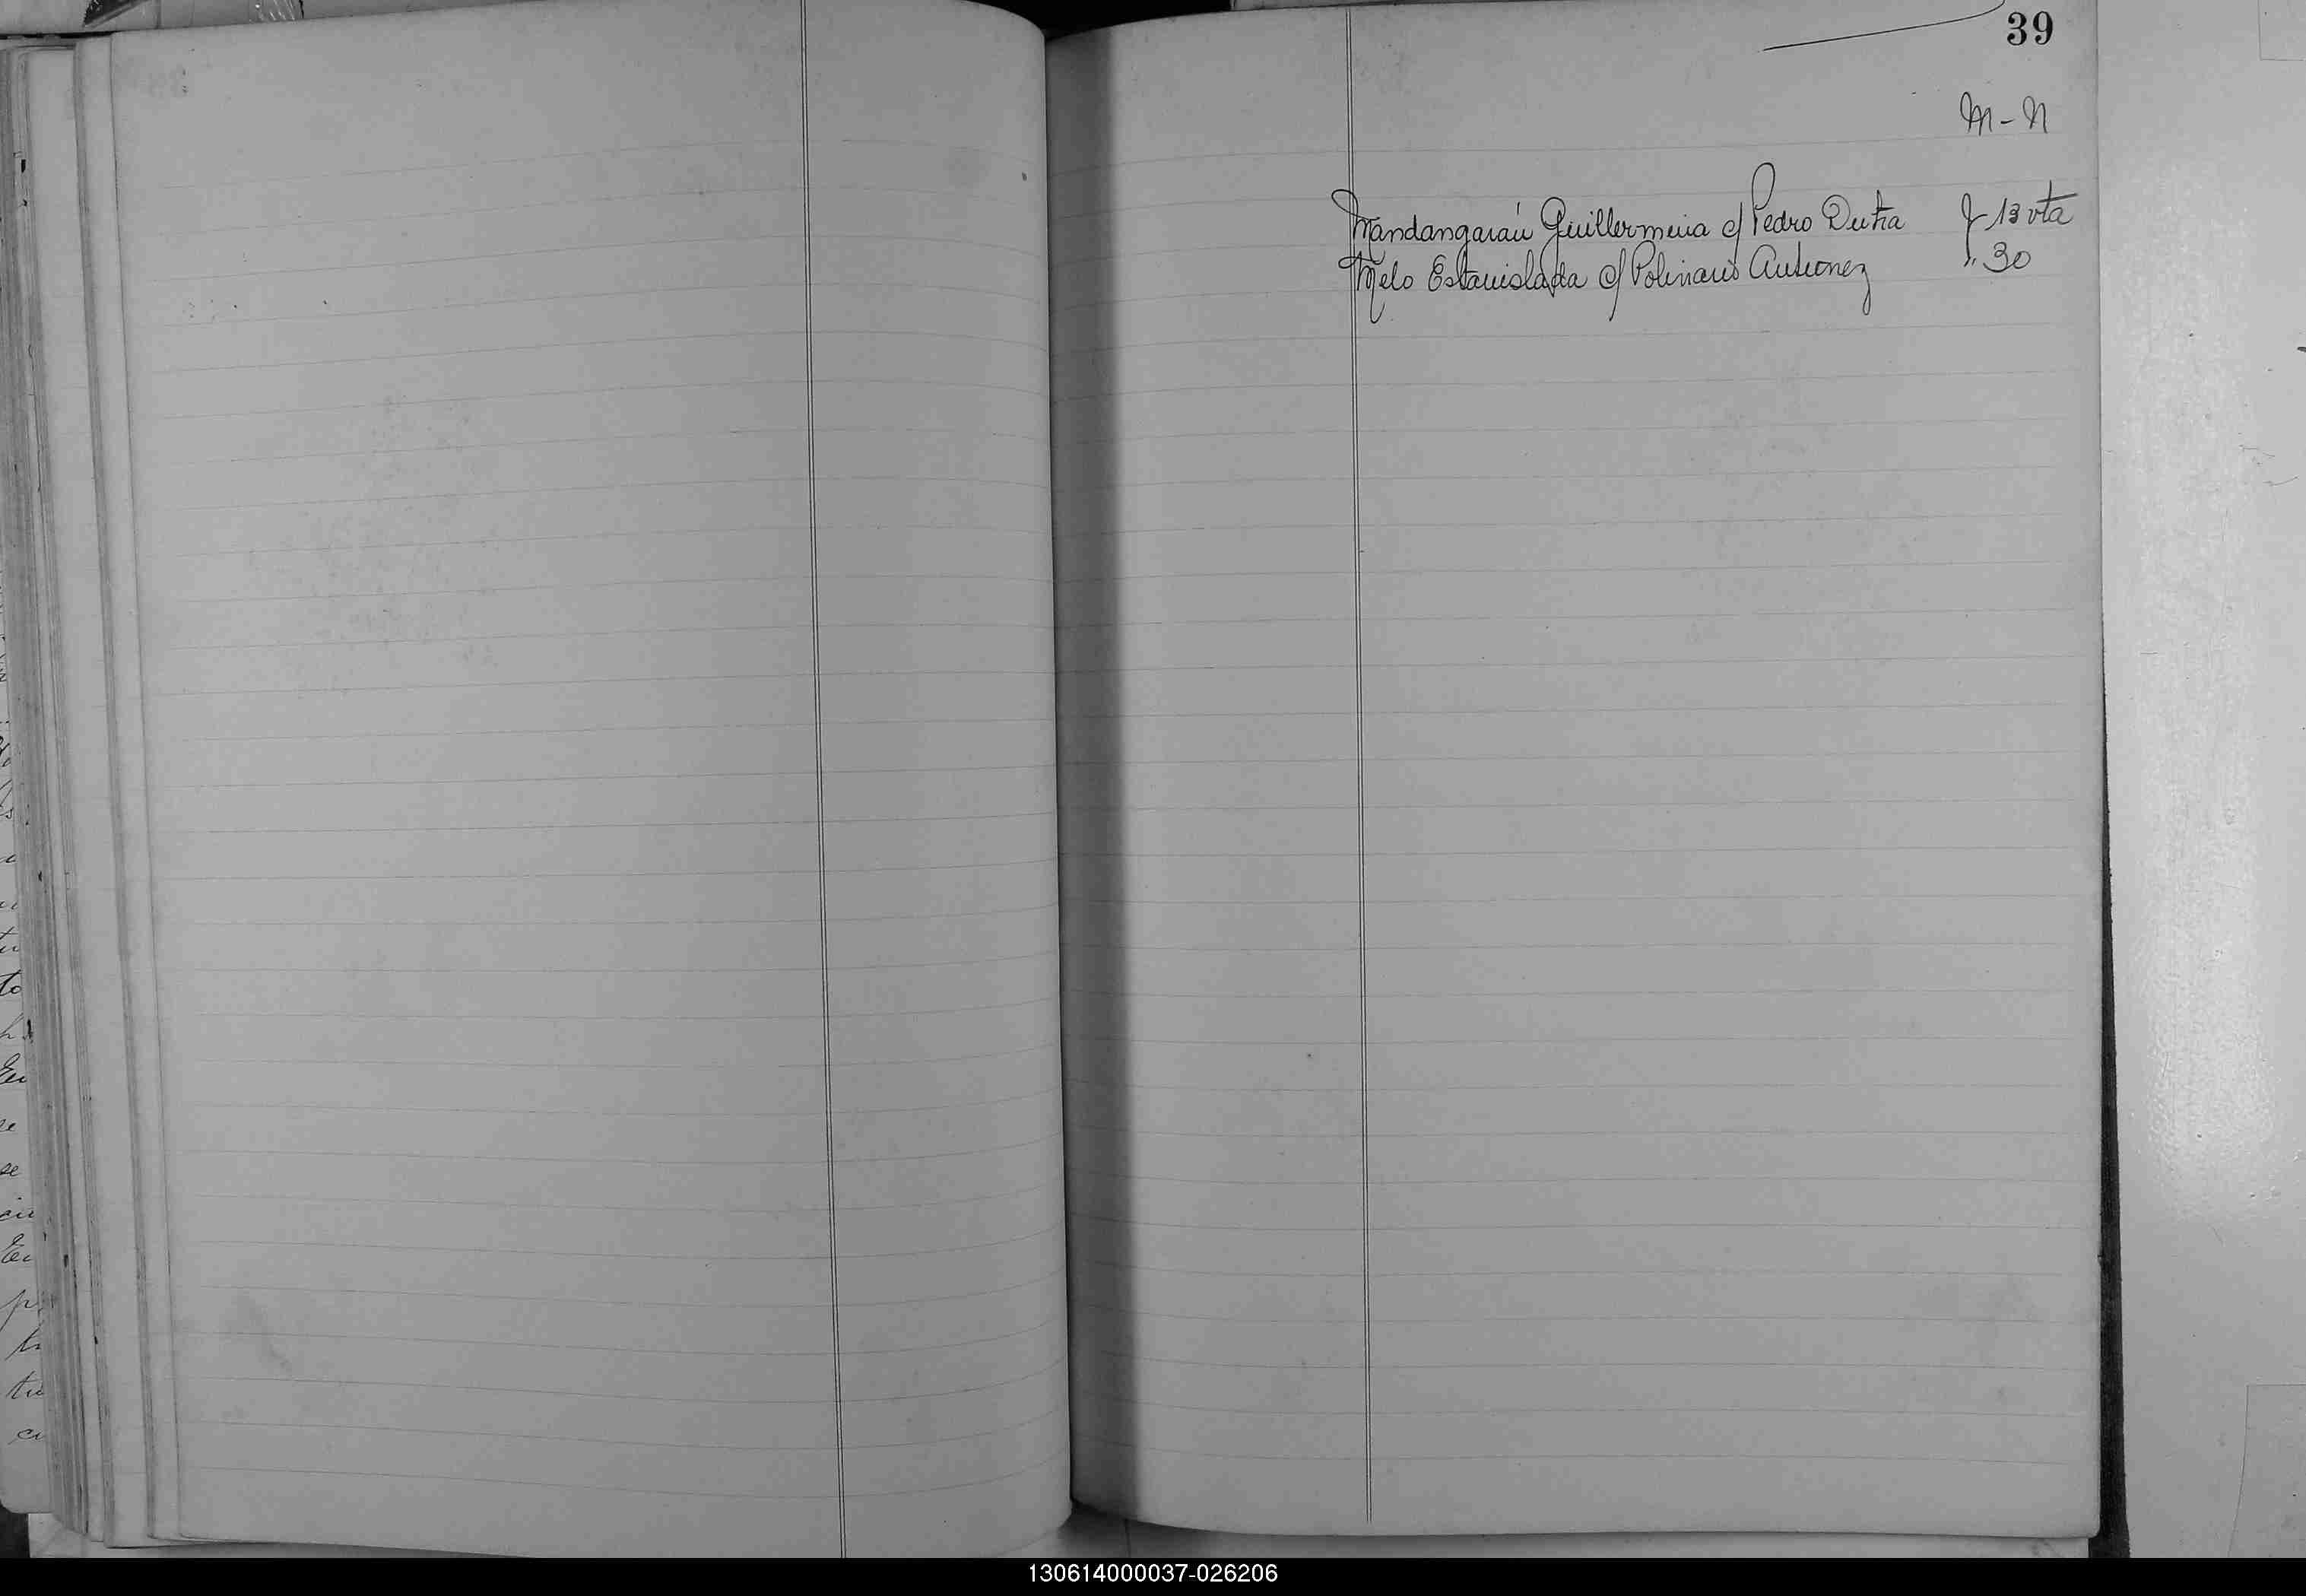 39
M-N
Mandangarán Guillermina c/ Pedro Dutra f 13 vta
Melo Estanislada c/ Polinario Antunez " 30
130614000037-026206